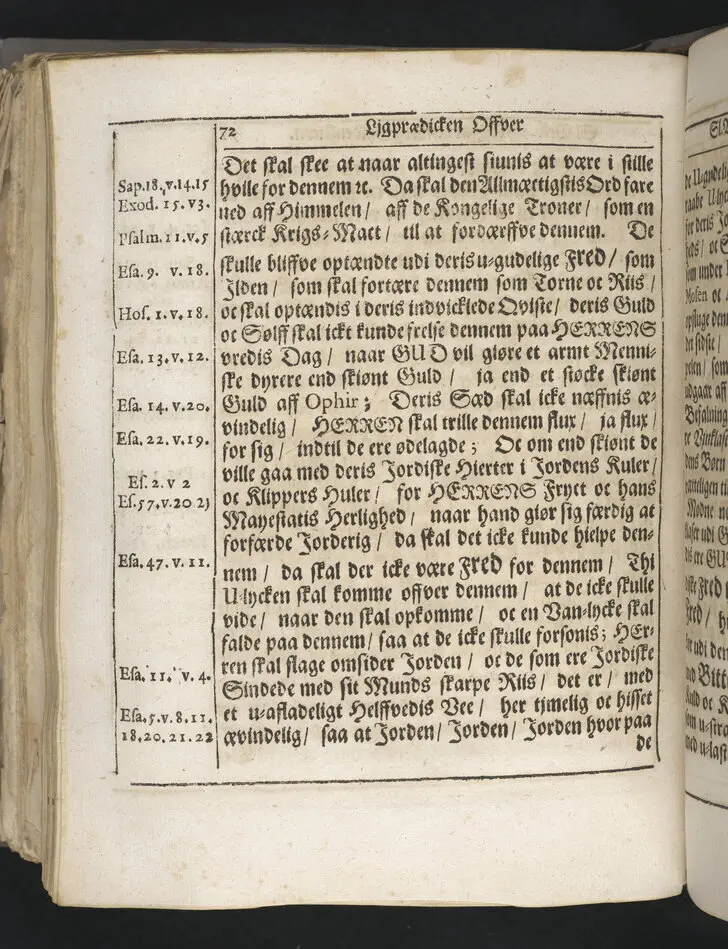 72 Ljgprædicken Offver
Det skal skee at naar altingest siunis at være i stille
Sap.18.v.14.15 hvile for dennem ꝛc. Da skal den Allmæctigstis Ord fare
Exod. 15.v3. ned aff Himmelen/ aff de Kongelige Troner/ som en
Psalm.11.v.5 stærck Krigs-Mact/ til at fordærffve dennem. De
Esa. 9. v. 18. skulle bliffve optændte udi deris u-gudelige Fred/ som
Jlden/ som skal fortære dennem som Torne oc Riis/
Hos. 1. v. 18. oc skal optændis i deris indvicklede Qviste/ deris Guld
oc Sølff skal ickt kunde frelse dennem paa HERRENS
Esa. 13.v.12. vredis Dag/ naar GUD vil giøre et armt Menni-
ske dyrere end skiønt Guld/ ja end et støcke skiønt
Esa. 14. v.20. Guld aff Ophir; Deris Sæd skal icke næffnis æ-
vindelig/ HERREN skal trille dennem flux/ ja flux/
Esa. 22. v. 19. for sig/ indtil de ere ødelagde; Oc om end skiønt de
ville gaa med deris Jordiske Hierter i Jordens Kuler/
Es. 2. v 2 oc Klippers Huler/ for HERRENS Fryct oc hans
Es.57.v.20 21 Mayestatis Herlighed/ naar hand giør sig færdig at
forfærde Jorderig/ da skal det icke kunde hielpe den-
Esa. 47. v. 11. nem/ da skal der icke være Fred for dennem/ Thi
U-lycken skal komme offver dennem/ at de icke skulle
vide/ naar den skal opkomme/ oc en Van-lycke skal
falde paa dennem/ saa at de icke skulle forsonis; HEr-
Esa. 11. v. 4. ren skal slage omsider Jorden/ oc de som ere Jordiske
Sindede med sit Munds skarpe Riis/ det er/ med
Esa.5.v.8.11. et u-afladeligt Helffvedis Vee/ her tjmelig oc hisset
18.20.21.22 ævindelig/ saa at Jorden/ Jorden/ Jorden hvor paa
de